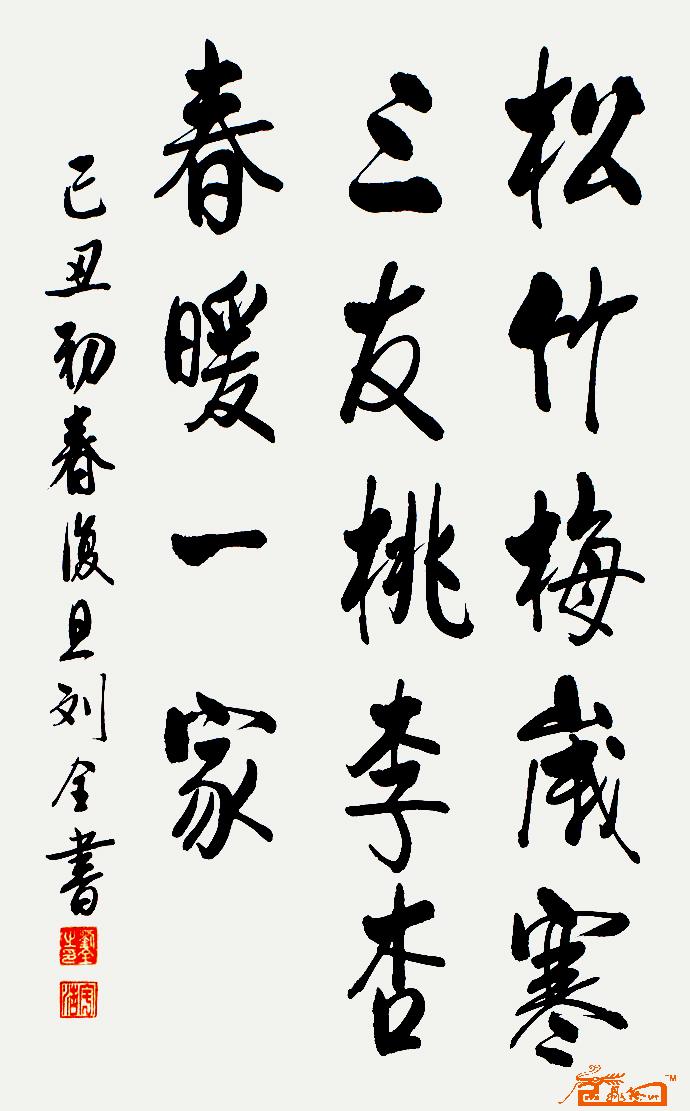 松竹梅歲寒
三友桃李杏
春暖一家
己丑初春復旦刘全書